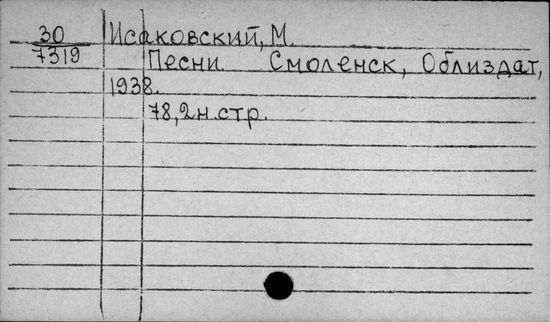 30 Исаковский, М.
7319 Песни Смоленск, Облиздат,
1938.
78,2н.стр.